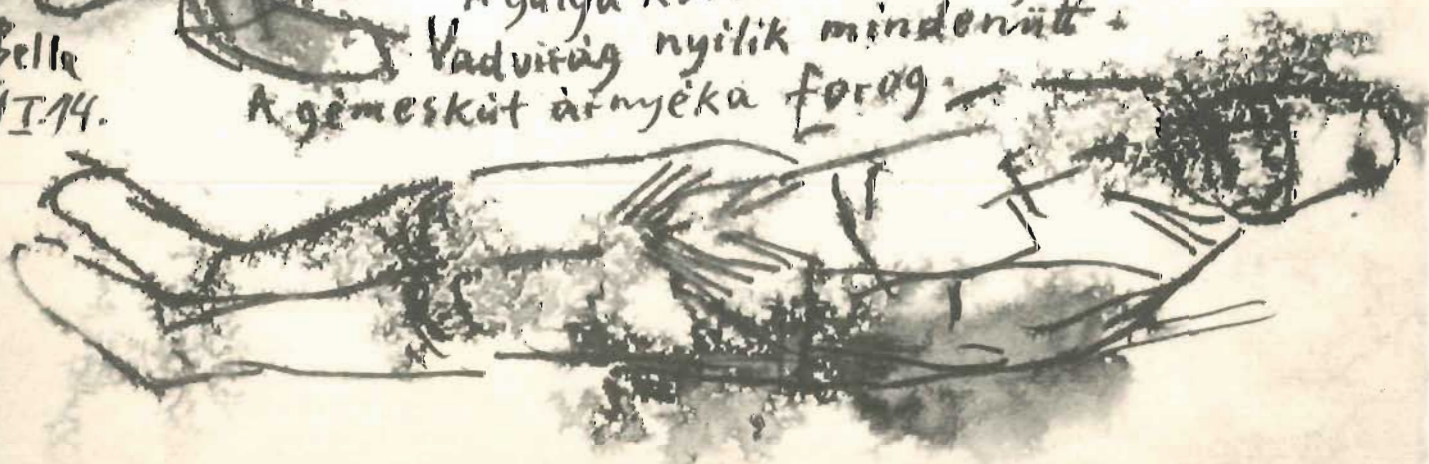 Vadvirág nyílik mindenütt.
Bella
A gémeskút árnyéka forog.
I.14.